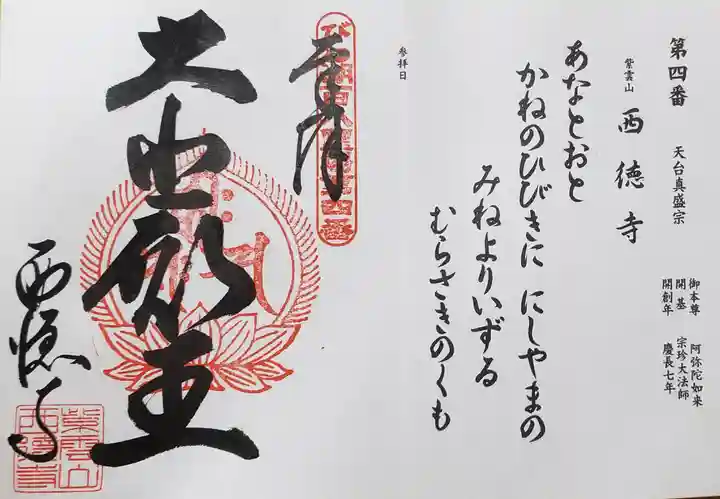 第四番　天台真盛宗
紫雲山　西徳寺
御本尊　阿弥陀如来
開基　宗珍大法師
開創年　慶長七年
あなとおと
かねのひびきに にしやまの
みねよりいずる
むらさきのくも
参拝日
奉拝
西徳寺
紫雲山
西徳寺